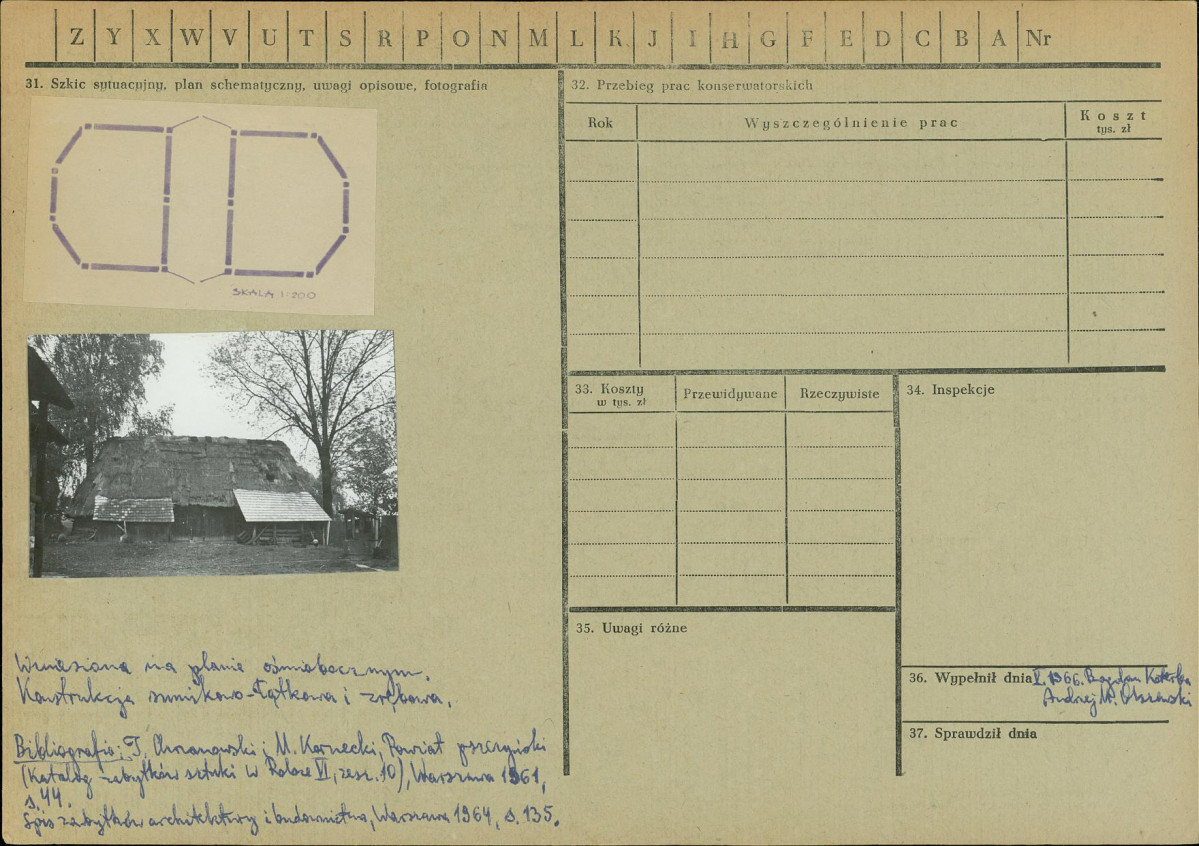 Z Y X W V U T S R P O N M L K J I H G F E D C B A Nr
31. Szkic sytuacyjny, plan schematyczny, uwagi opisowe, fotografia
SKALA 1:200
Wzniesiona na planie ośmiobocznym.
Konstrukcja sumikowo-łątkowa i zrębowa.
Bibliografia: I. Chrzanowski i M. Kornecki, Powiat pszczyński
(Katalog zabytków sztuki w Polsce VI, zesz. 10), Warszawa 1961,
s. 44.
Spis zabytków architektury i budownictwa, Warszawa 1964, s. 135.
32. Przebieg prac konserwatorskich
Rok Wyszczególnienie prac Koszt
tys. zł
33. Koszty Przewidywane Rzeczywiste
w tys. zł
34. Inspekcje
35. Uwagi różne
36. Wypełnił dnia X. 1966. Bogdan Koterba
Andrzej K. Olszewski
37. Sprawdził dnia